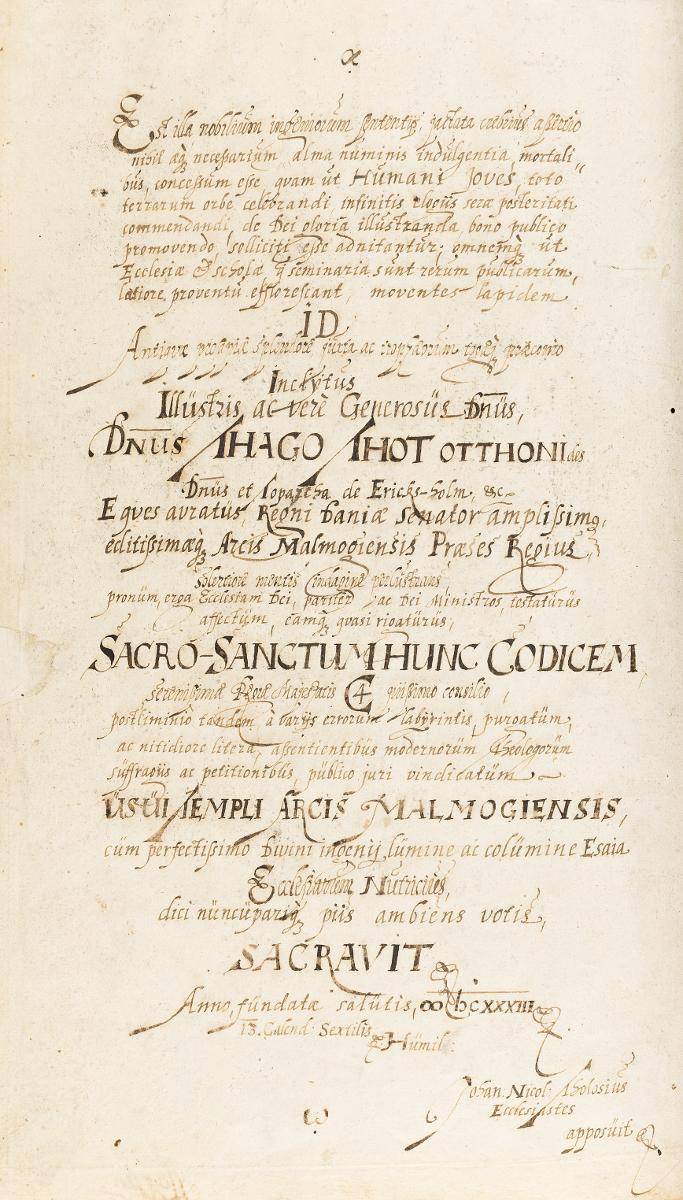 α
Est illa nobilium ingeniorum sententia, jactata crebrius assertio
nihil æq; necessarium, alma numinis indulgentia, mortali„
bus, concessum esse, quam ut Humani Joves, toto
terrarum orbe celebrandi infinitis seræ posteritati
commendandi, de Dei gloria illustranda, bono publico
promovendo, solliciti esse adnitantur; omnemq; ut
Ecclesiæ & scholæ q seminaria sunt rerum publicarum,
lætiore proventu efflorescant, moventes lapidem
ID
Antiquæ splendore juxta ac præconio
Inclytus
Illustris ac verè Generosus Dnus,
DNUS THAGO THOT OTTHONIdes
Dnus et Toparcha de Ericks-holm, &c
Eques auratus, Regni Daniæ Senator amplissimg,
editissimæq; Arcis Malmogiensis Præses Regius
Solertiore mentis indagine perlustrans,
pronum, erga Ecclesiam Dei, pariter ac Dei Ministros, testaturus
affectum, eamq; quasi rigaturus,
SACRO-SANCTUM HUNC CODICEM,
serenissimæ Regiæ Majestatis C4 consilio,
postliminio tandem à varijs errorum labyrintis, purgatum,
ac nitidiore litera, assentientibus modernorum Theologorum
suffragiis ac petitionibus, publico juri vindicatum
USUI TEMPLI ARCIS MALMOGIENSIS,
cum perfectissimo Divini ingenij lumine ac columine Esaia
Ecclesiarum Nutricius,
dici nuncupariq; piis ambiens votis,
SACRAVIT
Anno, fundatæ salutis, ∞ IƆCXXXIII
13. Calend: Sextilis
Humil:
Johan. Nicol: Tholosius
Ecclesiastes
apposuit
ω